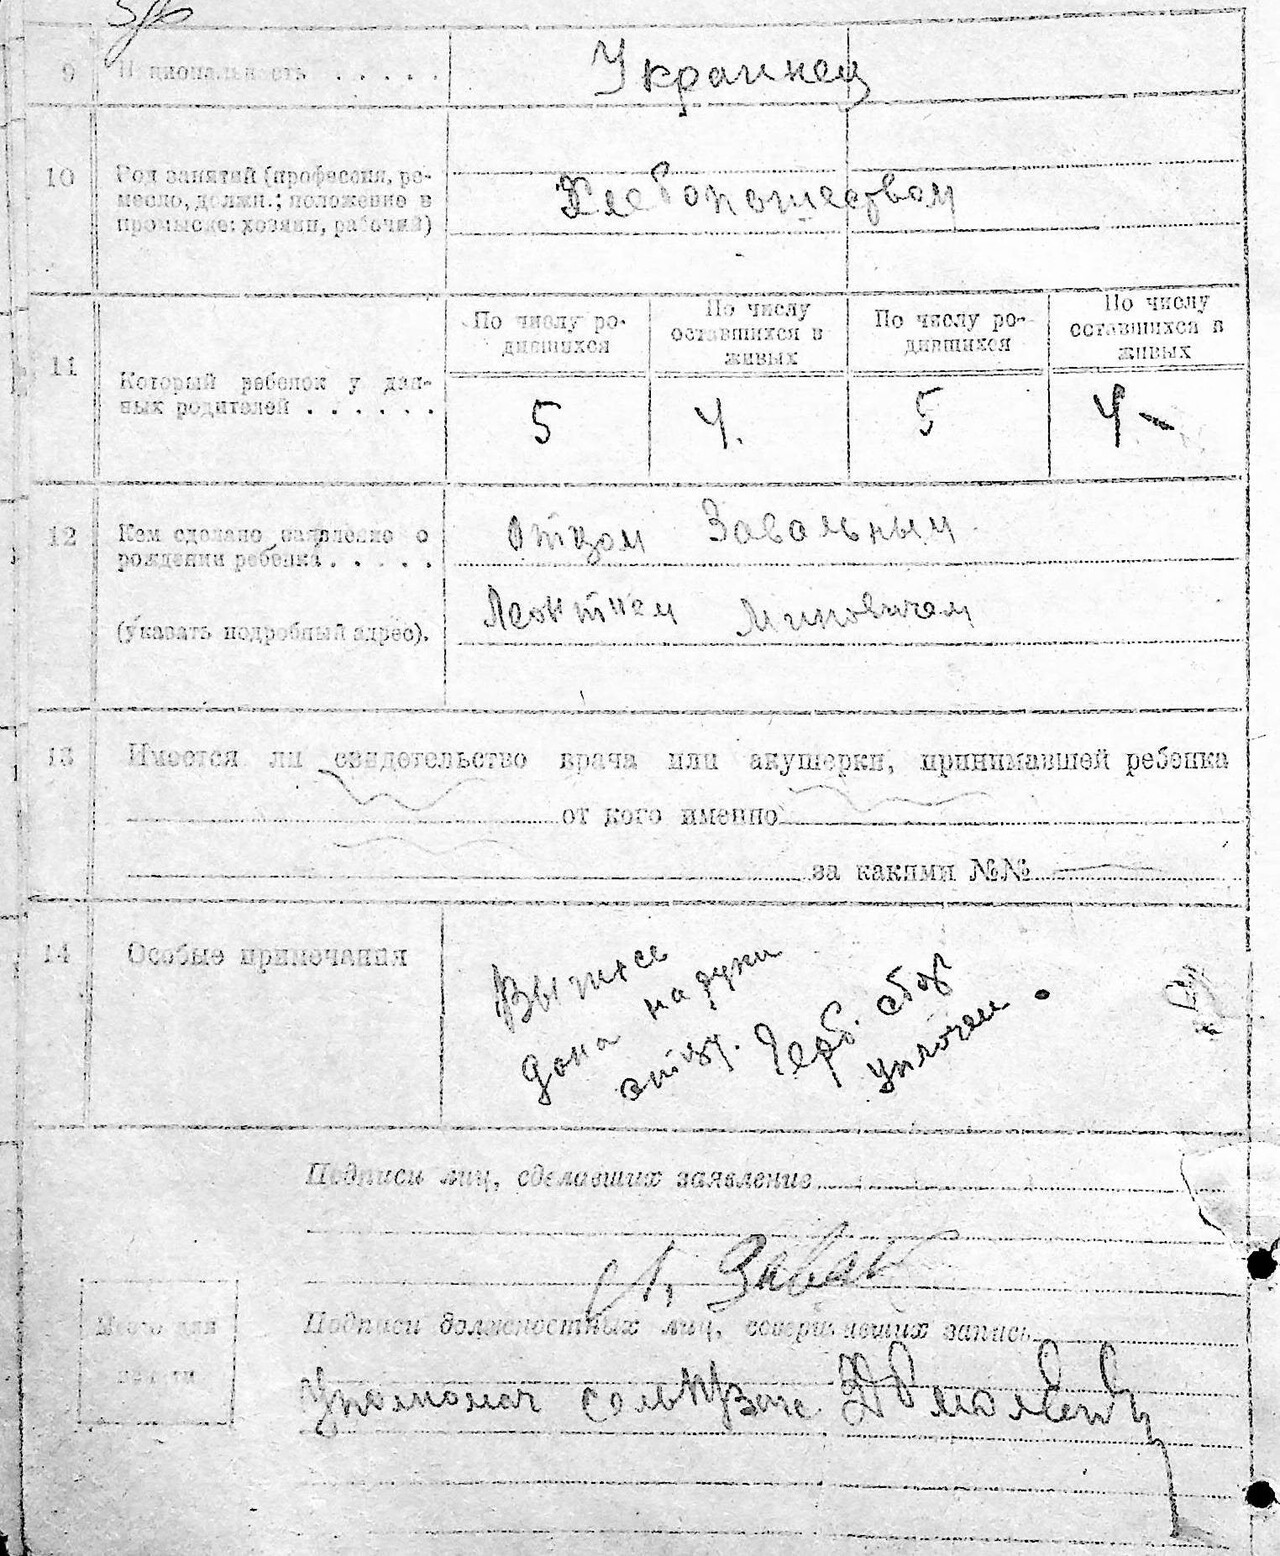 9 Национальность . . . . . Украинец
10 Род занятий (профессия, ре-
месло, должн.; положение в
промысле: хозяин, рабочий)
Хлебопашеством
11 Который ребенок у дан-
ных родителей . . . . . .
По числу ро-
дившихся
По числу
оставшихся в
живых
По числу ро-
дившихся
По числу
оставшихся в
живых
5 4. 5 4.
12 Кем сделано заявление о
рождении ребенка . . . . .
(указать подробный адрес).
Отцом Завальным
Леонтием Миновичем
13 Имеется ли свидетельство врача или акушерки, принимавшей ребенка
от кого именно
за какими №№
14 Особые примечания
Выпись
дана на руки
отцу. Герб. сбор
уплочен.
Подписи лиц, сделавших заявление
Л. Завал
Подписи должностных лиц, совершивших запись
Место для
печати
Уполномоч